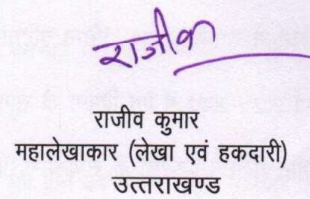 राजीव
राजीव कुमार
महालेखाकार (लेखा एवं हकदारी)
उत्तराखण्ड